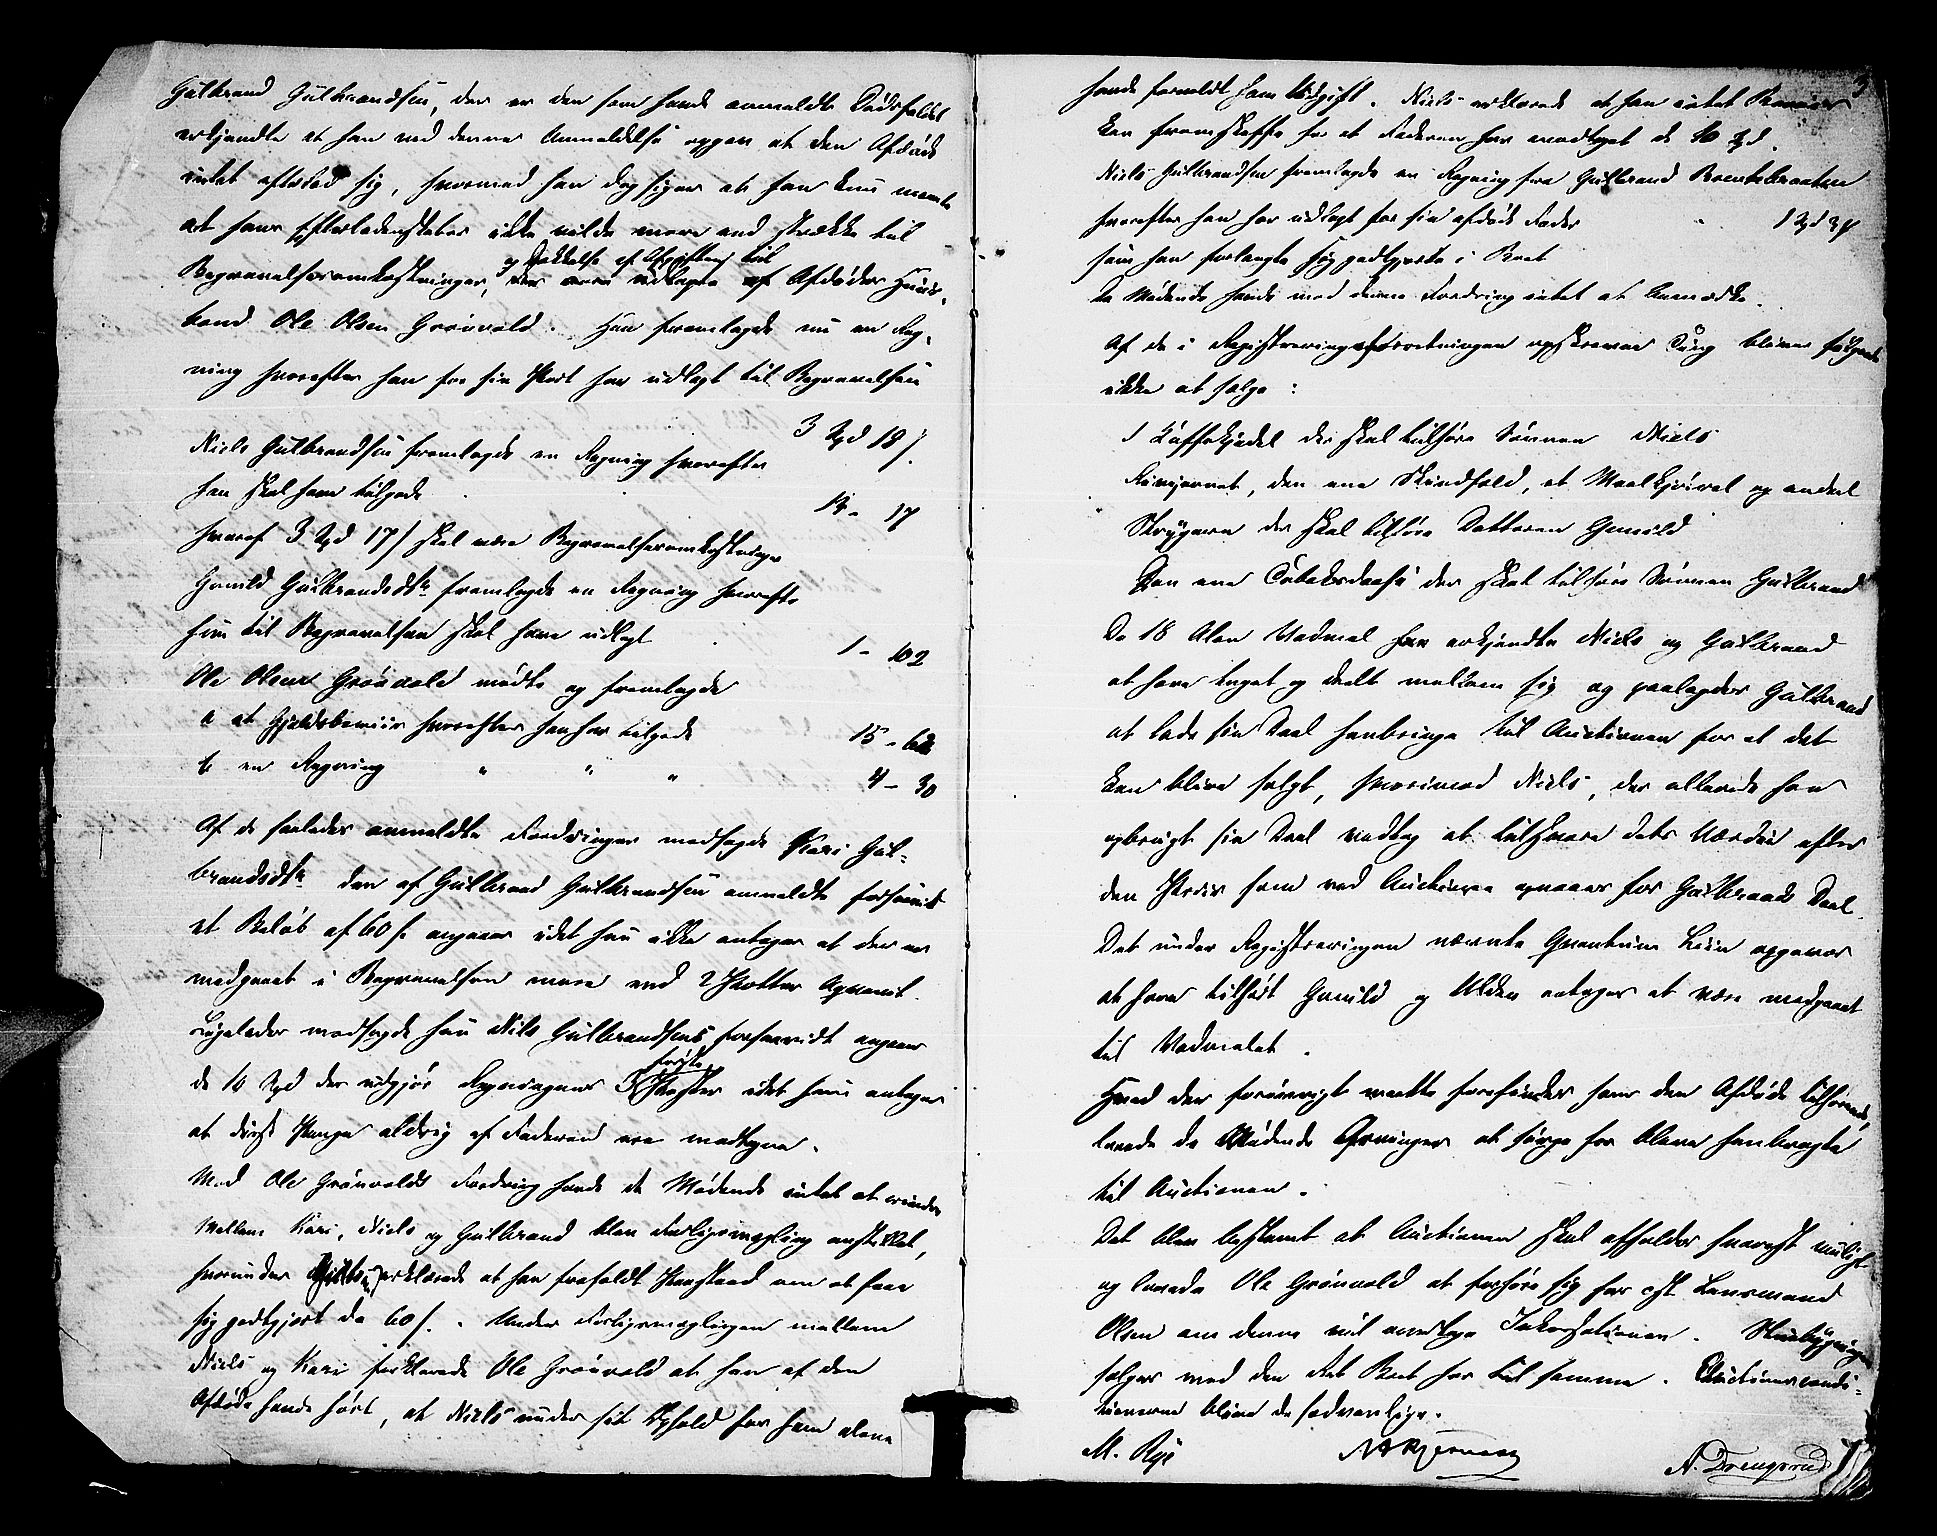 Gulbrand Gulbrandsen, der er den som havde anmeldt Dødsfaldet
erkjendte at han ved denne Anmeldelse opgav at den Afdøde
intet efterlod sig, hvormed han dog siger at han kun mente
at hans Efterladenskaber ikke vilde mere end strække til
og Dækkelse af Udgifterne til
Begravelsesomkostninger, der vare udlagte af Afdødes Huus-
bond Ole Olsen Grønvold. Han fremlagde nu en Reg-
ning hvorefter han for sin Part har udlagt til Begravelsen
3 Spd 18 s.
Niels Gulbrandsen fremlagde en Regning hvorefter
han skal have tilgode
17
hvoraf 3 Spd 17 s skal være Begravelsesomkostninger
Gunild Gulbrandsdtr fremlagde en Regning hvorefter
hun til Begravelsen skal have udlagt 1 - 102
Ole Olsen Grønvold mødte og fremlagde
a et Gjældsbeviis hvorefter han har tilgode 15 -
b en Regning " " " 4 - 30
Af de saaledes anmeldte Fordringer modsagde Kari Gul-
brandsdtr den af Gulbrand Gulbrandsen anmeldte forsaavidt
et Beløb af 60 s. angaaer idet hun ikke antager at der er
medgaaet i Begravelsen mere end 2 Potter Aqvavit.
Ligeledes modsagde hun Niels Gulbrandsens forsaavidt angaaer
første
de 10 Spd der udgjør Regningens 3 Poster idet hun antager
at disse Penge aldrig af Faderen ere modtagne.
Mod Ole Grønvolds Fordring havde de Mødende intet at erindre
Mellem Kari, Niels og Gulbrand blev Forligsmægling anstillet,
hvorunder erklærede at han frafaldt Paastand om at faae
sig godtgjort de 60 s. Under Forligsmæglingen mellem
Niels og Kari forklarede Ole Grønvold at han af den
Afdøde havde hørt, at Niels under sit Ophold hos ham alene
havde forvoldt ham Udgift. Niels erklærede at han intet Beviis
kan fremskaffe for at Faderen har modtaget de 10 Spd.
Niels Gulbrandsen fremlagde en Regning fra Gulbrand Brentebraaten
hvorefter han har udlagt for sin afdøde Fader 1 Spd
som han forlangte sig godtgjorte i Boet
De Mødende havde mod denne Fordring intet at bemærke.
Af de i Registreringsforretningen opskrevne Ting blive følgende
ikke at sælge:
1 Kaffekjedel der skal tilhøre Sønnen Niels
den ene Skindfeld, et og andet
der skal tilhøre Datteren Gunild
Den ene Tobaksdaase der skal tilhøre Sønnen Gulbrand
De 18 Alen Vadmel erkjendte Niels og Gulbrand
at have taget og deelt mellem sig og paalagdes Gulbrand
at lade sin Deel henbringe til Auctionen for at det
kan blive solgt, hvorimod Niels, der allerede har
opbrugt sin Deel vedtog at tilsvare dets Værdie efter
den Priis som ved Auctionen opnaaes for Gulbrands Deel.
Det under Registreringen nævnte Qvantum Liin opgaves
at have tilhørt Gunild og Ulden antages at være medgaaet
til Vadmelet.
Hvad der forøvrigt maatte forefindes som den Afdøde tilhørende,
lovede de Mødende Arvinger at sørge for bliver henbragte
til Auctionen.
Det blev bestemt at Auctionen skal afholdes snarest muligt
og lovede Ole Grønvold at forhøre sig hos cst. Lensmand
Olsen om denne vil overtage Incassationen. Huusbygningen
sælges med den Ret Boet har til samme. Auctionscondi-
tionerne blive de sædvanlige.
M. Rye
A. Drengsrud